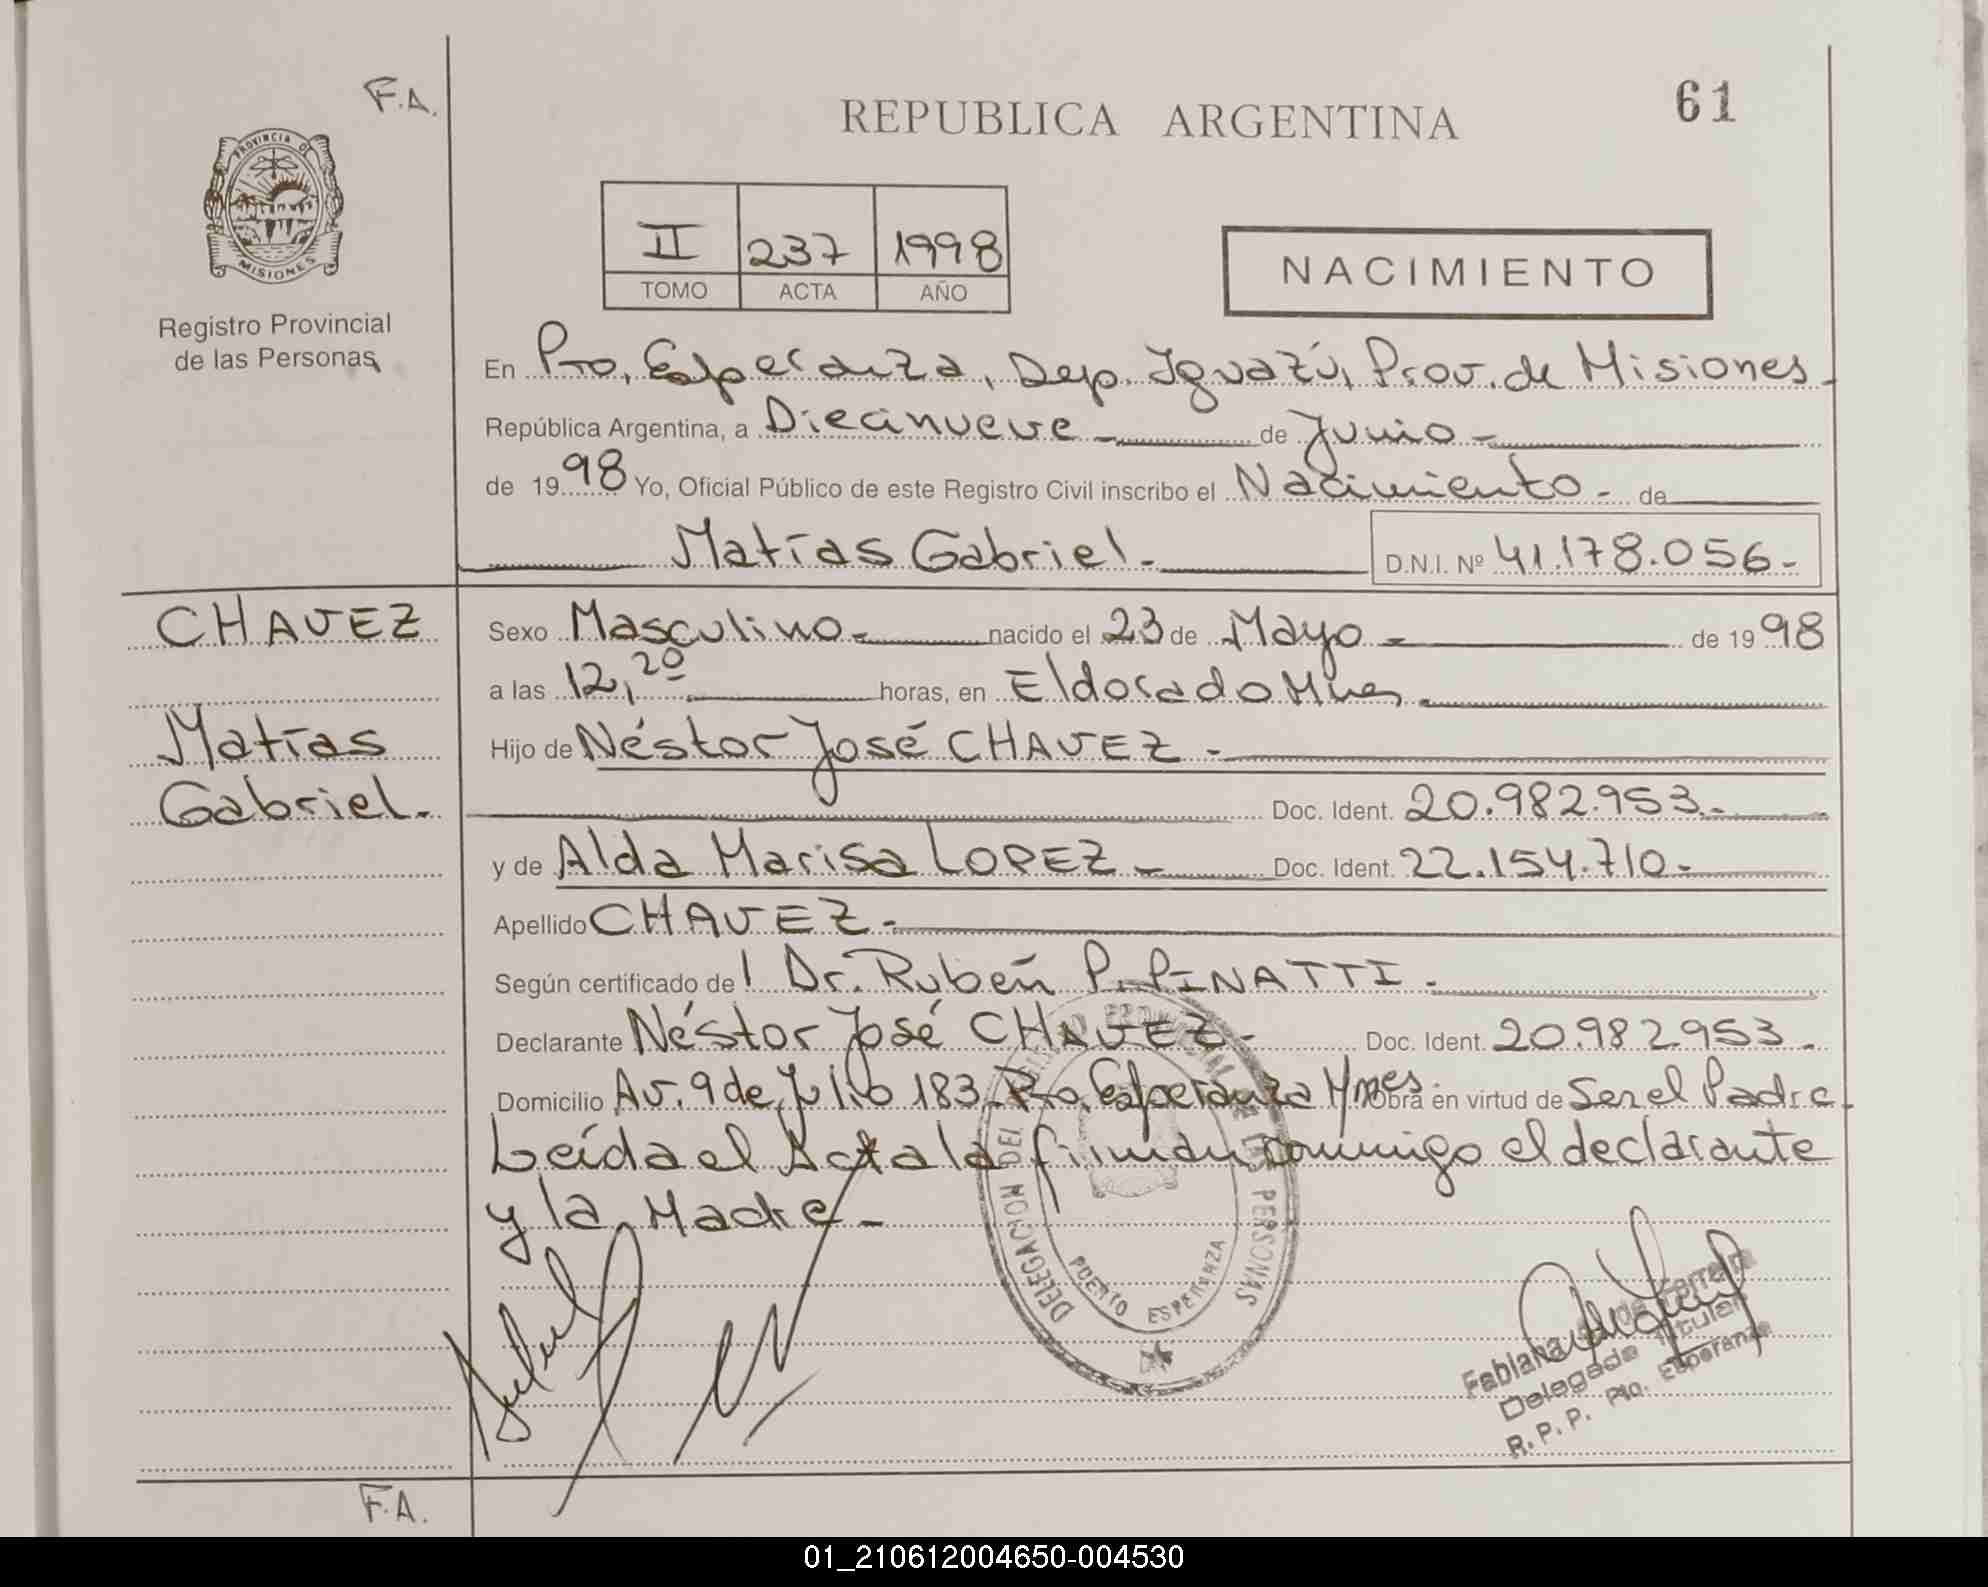 F.A.
REPUBLICA ARGENTINA
61
PROVINCIA D
MISIONES
Registro Provincial
de las Personas
II 237 1998
TOMO ACTA AÑO
NACIMIENTO
En Pto. Esperanza, Dep. Iguazú, Prov. de Misiones-
República Argentina, a Diecinueve- de Junio-
de 1998 Yo, Oficial Público de este Registro Civil inscribo el Nacimiento- de
Matías Gabriel.- D.N.I. Nº 41.178.056-
CHAVEZ
Matías
Gabriel.-
Sexo Masculino- nacido el 23 de Mayo- de 1998
a las 12,20 horas, en Eldorado Mnes.
Hijo de Néstor José CHAVEZ-
Doc. Ident. 20.982.953.-
y de Alda Marisa LOPEZ- Doc. Ident. 22.154.710-
Apellido CHAVEZ-
Según certificado del Dr. Rubén P. PINATTI.-
Declarante Néstor José CHAVEZ- Doc. Ident. 20.982953.-
Domicilio Av. 9 de Julio 183 Pto. Esperanza Mnes. Obra en virtud de Ser el Padre
Leída el Acta la firman conmigo el declarante
y la Madre-
DELEGACION DEL REGISTRO PROVINCIAL DE LAS PERSONAS
PUERTO ESPERANZA
Fabiana de Ferreira
Delegada Titular
R.P.P. Pto. Esperanza
F.A.
01_210612004650-004530